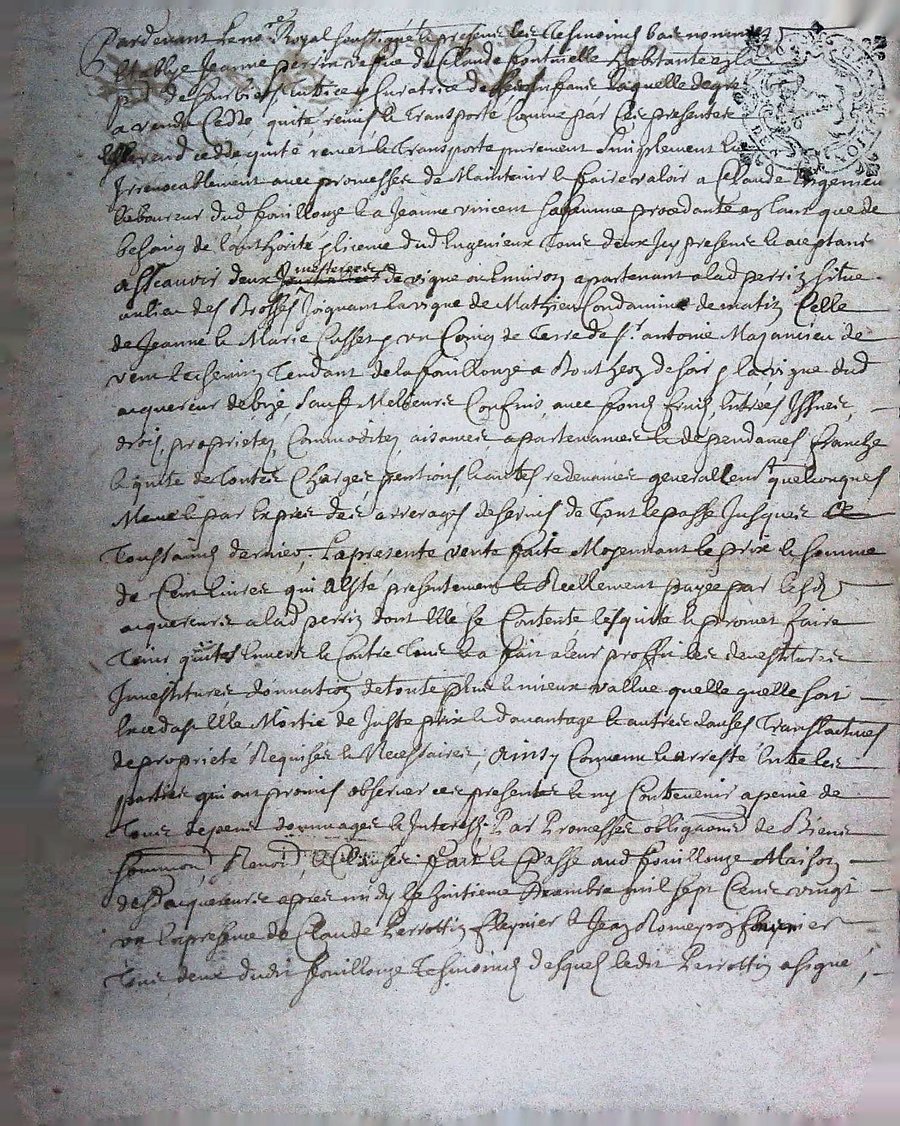 Pardevant le no.re Royal soussigné & presens les tesmoins bas nommez
establye Jeanne perrin vefve de Claude fontvielle habitante en la
de Sorbiers tutrice & Curatrice de ses enfans laquelle de gré
a vendu Cedde, quité, remis & transporté Comme par Ces presentes
elle vend cedde quite remet & transporte purement simplement &
Irrevocablement avec promesses de Maintenir & faire valoir a Claude Ingenieu
laboureur dud fouillouze & a Jeanne vincent sa femme procedante en tant que de
besoing de l'authorité & licence dud Ingenieux tous deux Icy presens & aceptans
assavoir deux de vigne ou Environ apartenant a lad perrin situé
au lieu des Brosses Joignant la vigne de Mathieu Condamine de matin Celle
de Jeanne & Marie Cusset & un Coing de Terre de s.r antoine Mazancieu de
vent le chemin Tendant de la fouillouze a Bontheon de soir & la vigne dud
aquereur de bize sauf Melieurs Confins, avec fond, fruits, Entrees Issues,
droits, proprietez, Commoditez, aisances, apartenances & dependances franche
& quite de Toutes Charges pentions, & autres redevances generallement quelconques
Mesme & par Expres des arrerages de servis de Tout le passé Jusques a
Toussaincts dernier, La presente vente faite Moyennant le prix & somme
de Cent livres qui a Esté presentement & Reellement payée par lesd
aquereurs a lad perrin dont Elle se Contente les quitte & promet faire
Tenir quites Envers & Contre Tous & a fait a leur proffit les devestitures
Investitures donnation de toute plus & mieux vallue quelle quelle soit
Excedast Elle Moitié de Juste prix & davantage & autres Clauses Translatives
de proprieté Requises & Necessaires, Ainsy Convenu & arresté Entre les
parties qui ont promis observer ces presentes & ny Contrevenir a peine de
Tous depens dommages & Interests Par Promesses obligations de Biens
Renon.on & Clauses. fait & Passé aud fouillouze Maison
desd aquereurs apres midy le huitieme mil sept Cens vingt
un En presence de Claude Perrottin & Jean Romeyron
Tous deux dudit fouillouze Tesmoins desquels ledit Perrottin a signé,